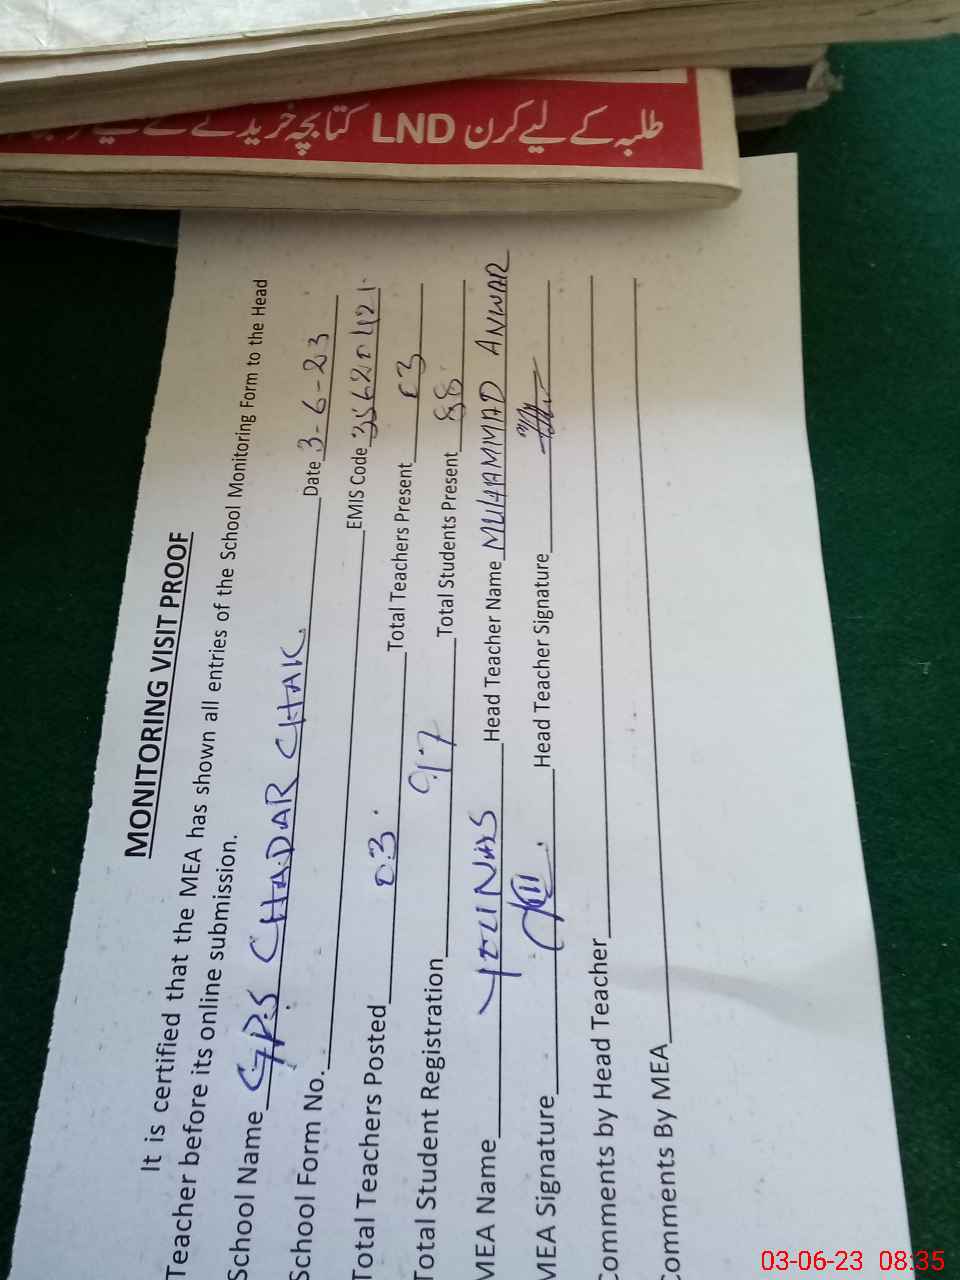 طلبہ کے لیے کرن LND کتابچہ خریدنے کے لیے
MONITORING VISIT PROOF
It is certified that the MEA has shown all entries of the School Monitoring Form to the Head
Teacher before its online submission.
School Name G.P.S CHADAR CHAK. Date 3-6-23
School Form No. EMIS Code 35620421
Total Teachers Posted 03. Total Teachers Present 03
Total Student Registration 97 Total Students Present 88
MEA Name YOUNAS Head Teacher Name MUHAMMAD ANWAR
MEA Signature Head Teacher Signature
Comments by Head Teacher
Comments By MEA
03-06-23 08:35